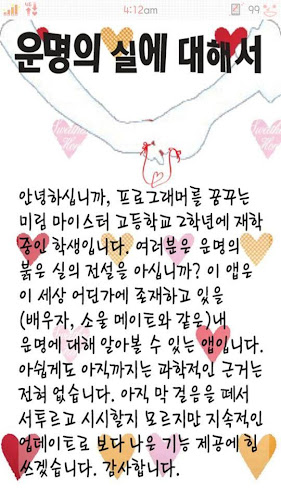 4:12am
99
운명의 실에 대해서
안녕하십니까, 프로그래머를 꿈꾸는
미림 마이스터 고등학교 2학년에 재학
중인 학생입니다. 여러분은 운명의
붉은 실의 전설을 아십니까? 이 앱은
이 세상 어딘가에 존재하고 있을
(배우자, 소울 메이트와 같은)내
운명에 대해 알아볼 수 있는 앱입니다.
아쉽게도 아직까지는 과학적인 근거는
전혀 없습니다. 아직 막 걸음을 떼서
서투르고 시시할지 모르지만 지속적인
업데이트로 보다 나은 기능 제공에 힘
쓰겠습니다. 감사합니다.